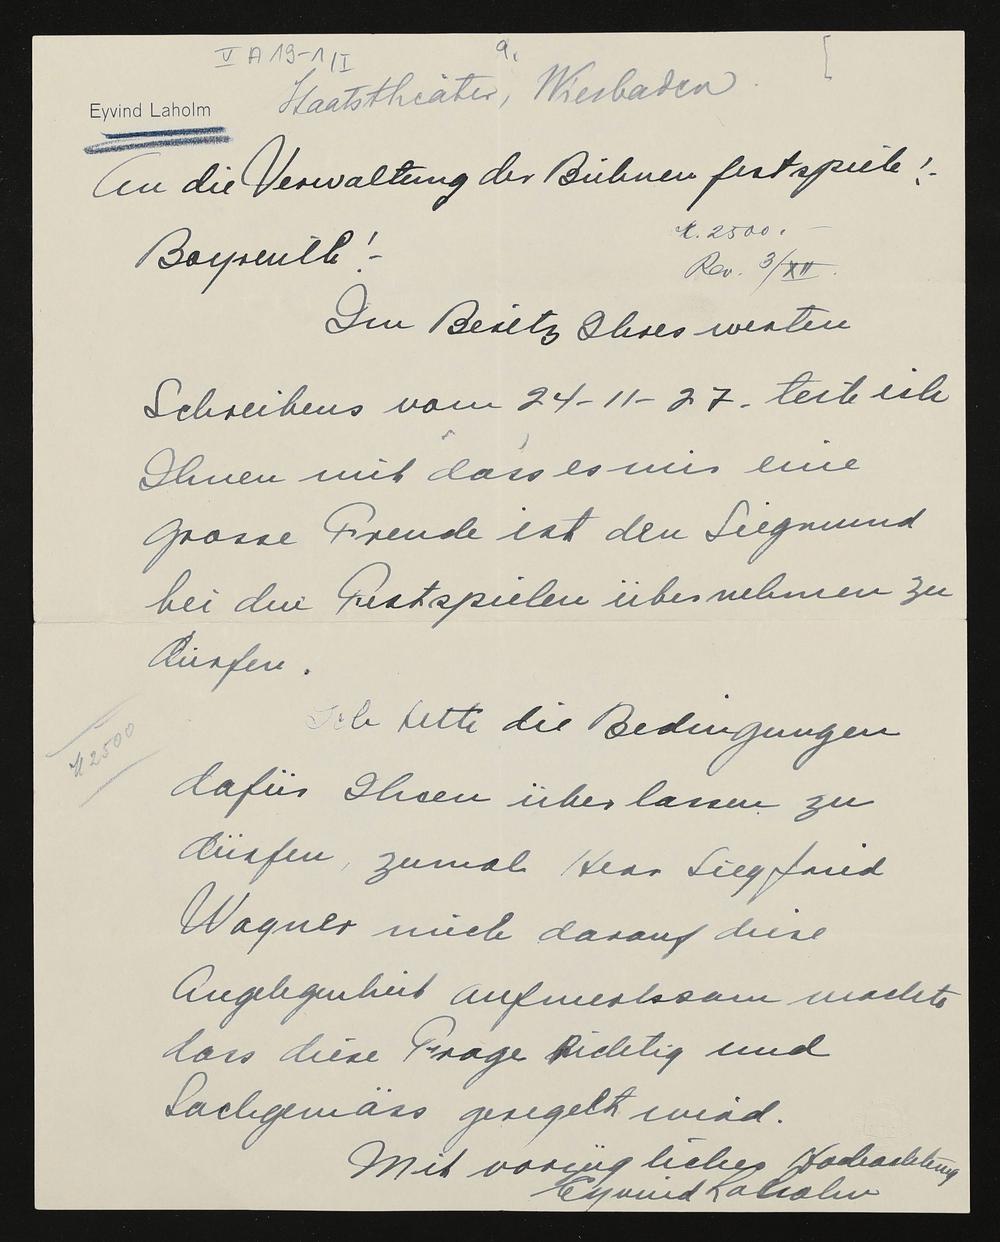 V A 19-1/I
9.
Staatstheater, Wiesbaden.
Eyvind Laholm
An die Verwaltung der Bühnenfestspiele!-
Bayreuth!-
M. 2500.-
Rev. 3/XII.
Im Besitz Ihres werten
Schreibens vom 24-11-27. teile ich
Ihnen mit dass es mir eine
grosse Freude ist den Siegmund
bei den Festspielen übernehmen zu
dürfen.
Ich bitte die Bedingungen
M 2500
dafür Ihnen überlassen zu
dürfen, zumal Herr Siegfried
Wagner mich darauf diese
Angelegenheit aufmerksam machte
dass diese Frage Richtig und
Sachgemäss geregelt wird.
Mit vorzüglicher Hochachtung
Eyvind Laholm